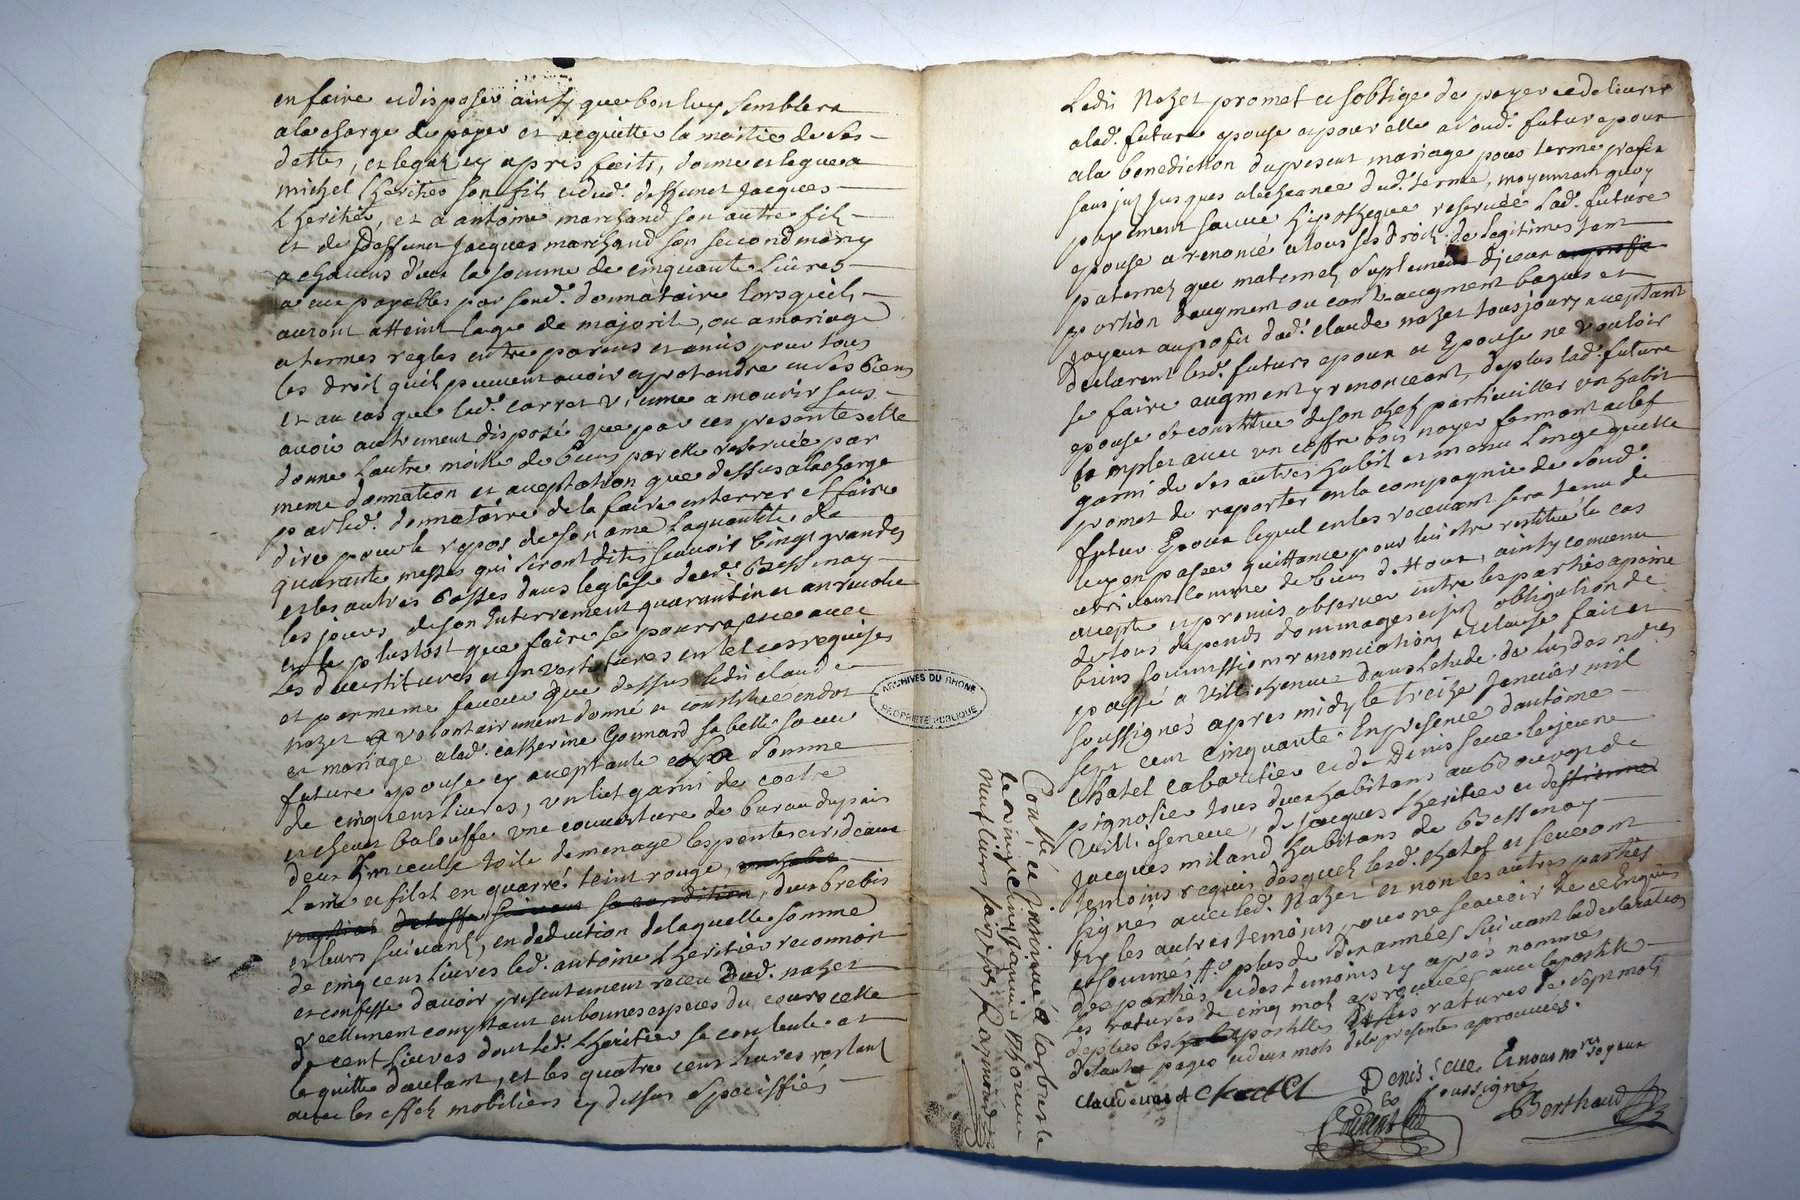 en faire et disposer ainsy que bon luy semblera
a la charge de payer et acquitter la moitié de ses
dettes, et legat cy apres faits, donne et legue a
michel Lheritier son fils et dud. deffunct Jacques
Lheritier, et a antoine marchand son autre fils
et de deffunct Jacques marchand son second mary
a chacuns d'eux la somme de cinquante Livres
a eux payables par sond. donnataire lorsqu'ils
auront atteint l'age de majorité, ou a mariage
a termes regles entre parens et amis pour tous
les droit qu'ils peuvent avoir et pretendre en ses biens
et au cas que lad. Carret vienne a mourir sans
avoir autrement disposé que par ces presentes elle
donne l'autre moitié de biens par elle reservée par
meme donnation et acceptation que dessus a la charge
par led. donnataire de la faire enterrer et faire
dire pour le repos de son ame la quantité de
quarante messes qui seront dites scavoir vingt grandes
et les autres basses dans l'eglise dud. Bessenay
les jours de son Enterrement quarantin et an revolu
et le plustost que faire se pourra avec
les devestitures et investitures en tel cas requises
et par meme faveur que dessus ledit claude
nozet a volontairement donné et constitué en dot
et mariage a lad. catherine Gonnard sa belle soeur
future epouse cy acceptante la somme
de cinq cens livres, un lict garni de coetre
et chevet balouffe une couverture de bureau du pais
deux linceuls toile de menage les pentes et rideaux
Laine et filet en quarré teint rouge,
deux brebis
et leurs suivants, en deduction de laquelle somme
de cinq cens livres led. antoine Lheritier reconnoit
et confesse d'avoir presentement receu dud. nozet
reellement comptant en bonnes especes du cours celle
de cent livres dont led. Lheritier se contente et
le quitte d'autant, et les quatre cens livres restant
avec les effets mobiliers cy dessus specifiés
ARCHIVES DU RHONE
PROPRIÉTÉ PUBLIQUE
Ledit Nozet promet et s'oblige de payer et delivrer
a lad. future epouse et pour elle a sond. futur epoux
a la benediction du present mariage pour terme prefix
sans jusques a l'echeance dud. terme, moyennant quoy
payement sauve hipotheque reservée Lad. future
epouse a renoncé a tous ses droits de legitimes tant
paternels que maternels suplement d'iceux
portion d'augment ou contr'augment bagues et
joyaux au profit dud. claude nozet tousjours acceptant
declarent lesd. futurs epoux et Epouse ne vouloir
se faire augment y renonceant, de plus lad. future
epouse se constitue de son chef particulier un habit
complet avec un coffre bois noyer fermant a clef
garni de ses autres habits et menu Linge qu'elle
promet de raporter en la compagnie de sond.
futur Epoux lequel en les recevant sera tenu de
luy en passer quittance pour lui etre restitué le cas
arrivant comme de biens dottaux, ainsy convenu
accepté et promis observer entre les parties a peine
de tous depends dommages et obligation de
biens soumissions renonciations et clauses fait et
passé a Villechenève dans l'etude de l'un des notres
soussignés apres midy le treize Janvier mil
sept cent cinquante En presence d'antoine
Chatel cabartier et de Denis seve le jeune
pignotier tous deux habitans au bourg de
Villecheneve, de Jacques Lheritier et
Jacques miland habitans de Bessenay
temoins requis desquels lesd. chatel et seve ont
signés avec led. Nozet et non les autres parties
ny les autres temoins, pour ne scavoir de ce Enquis
et sommés plus de dix années suivant la declaration
des parties et des temoins cy après nommés
les ratures de cinq mots aprouvées avec l'apostille
de plus les apostilles et les ratures de sept mots
de l'autre page et deux mots de la presente aprouvées.
Claude nozet chatel Denis seve Et nous nres royaux
soussignés
Berthaud
Contlé et Insinué a Larbresle
le vingt cinq Janvier 1750 receu
neuf livres seize sols Raymond